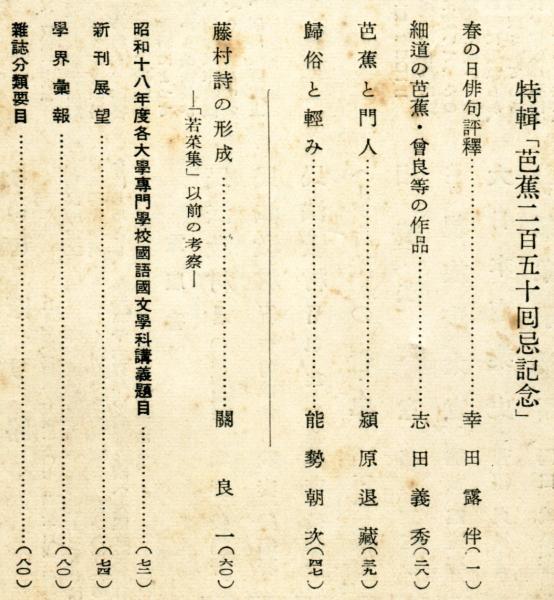 特輯「芭蕉二百五十回忌記念」
春の日俳句評釋……………………幸田露伴(一)
細道の芭蕉・曾良等の作品……………志田義秀(二八)
芭蕉と門人……………………潁原退藏(三九)
歸俗と輕み……………………能勢朝次(四七)
藤村詩の形成……………………關良一(六〇)
―「若菜集」以前の考察―
昭和十八年度各大學專門學校國語國文學科講義題目……………(七二)
新刊展望……………………(七四)
學界彙報……………………(八〇)
雜誌分類要目……………………(八〇)